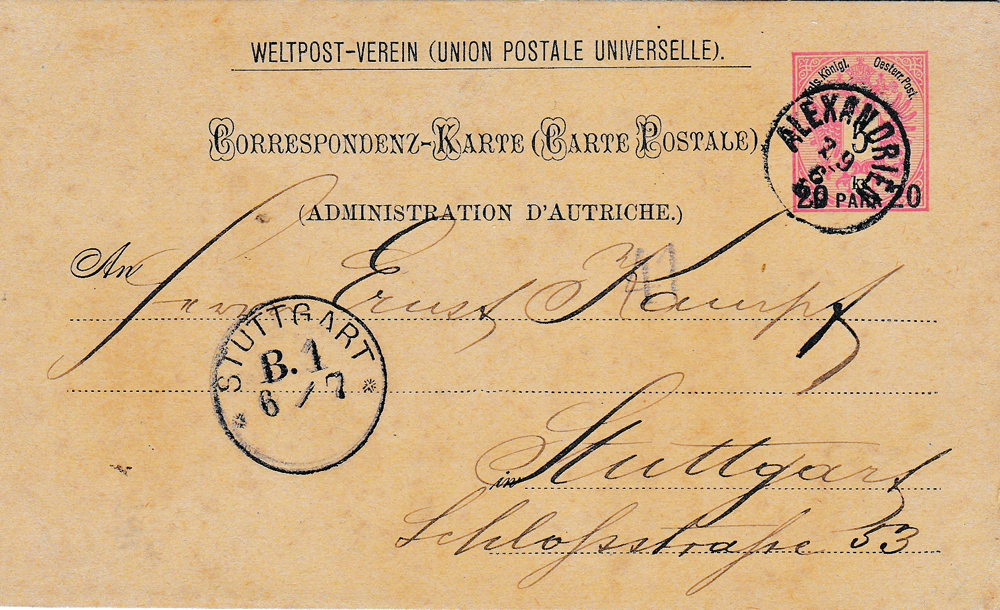 WELTPOST-VEREIN (UNION POSTALE UNIVERSELLE).
Kais. Königl. Oesterr. Post.
CORRESPONDENZ-KARTE (CARTE POSTALE)
ALEXANDRIEN
29
6
5
kr
20 PARA 20
(ADMINISTRATION D'AUTRICHE.)
An
Herrn Ernst Kampf
STUTTGART
B. 1
6 / 7
in Stuttgart
Schloßstraße 53